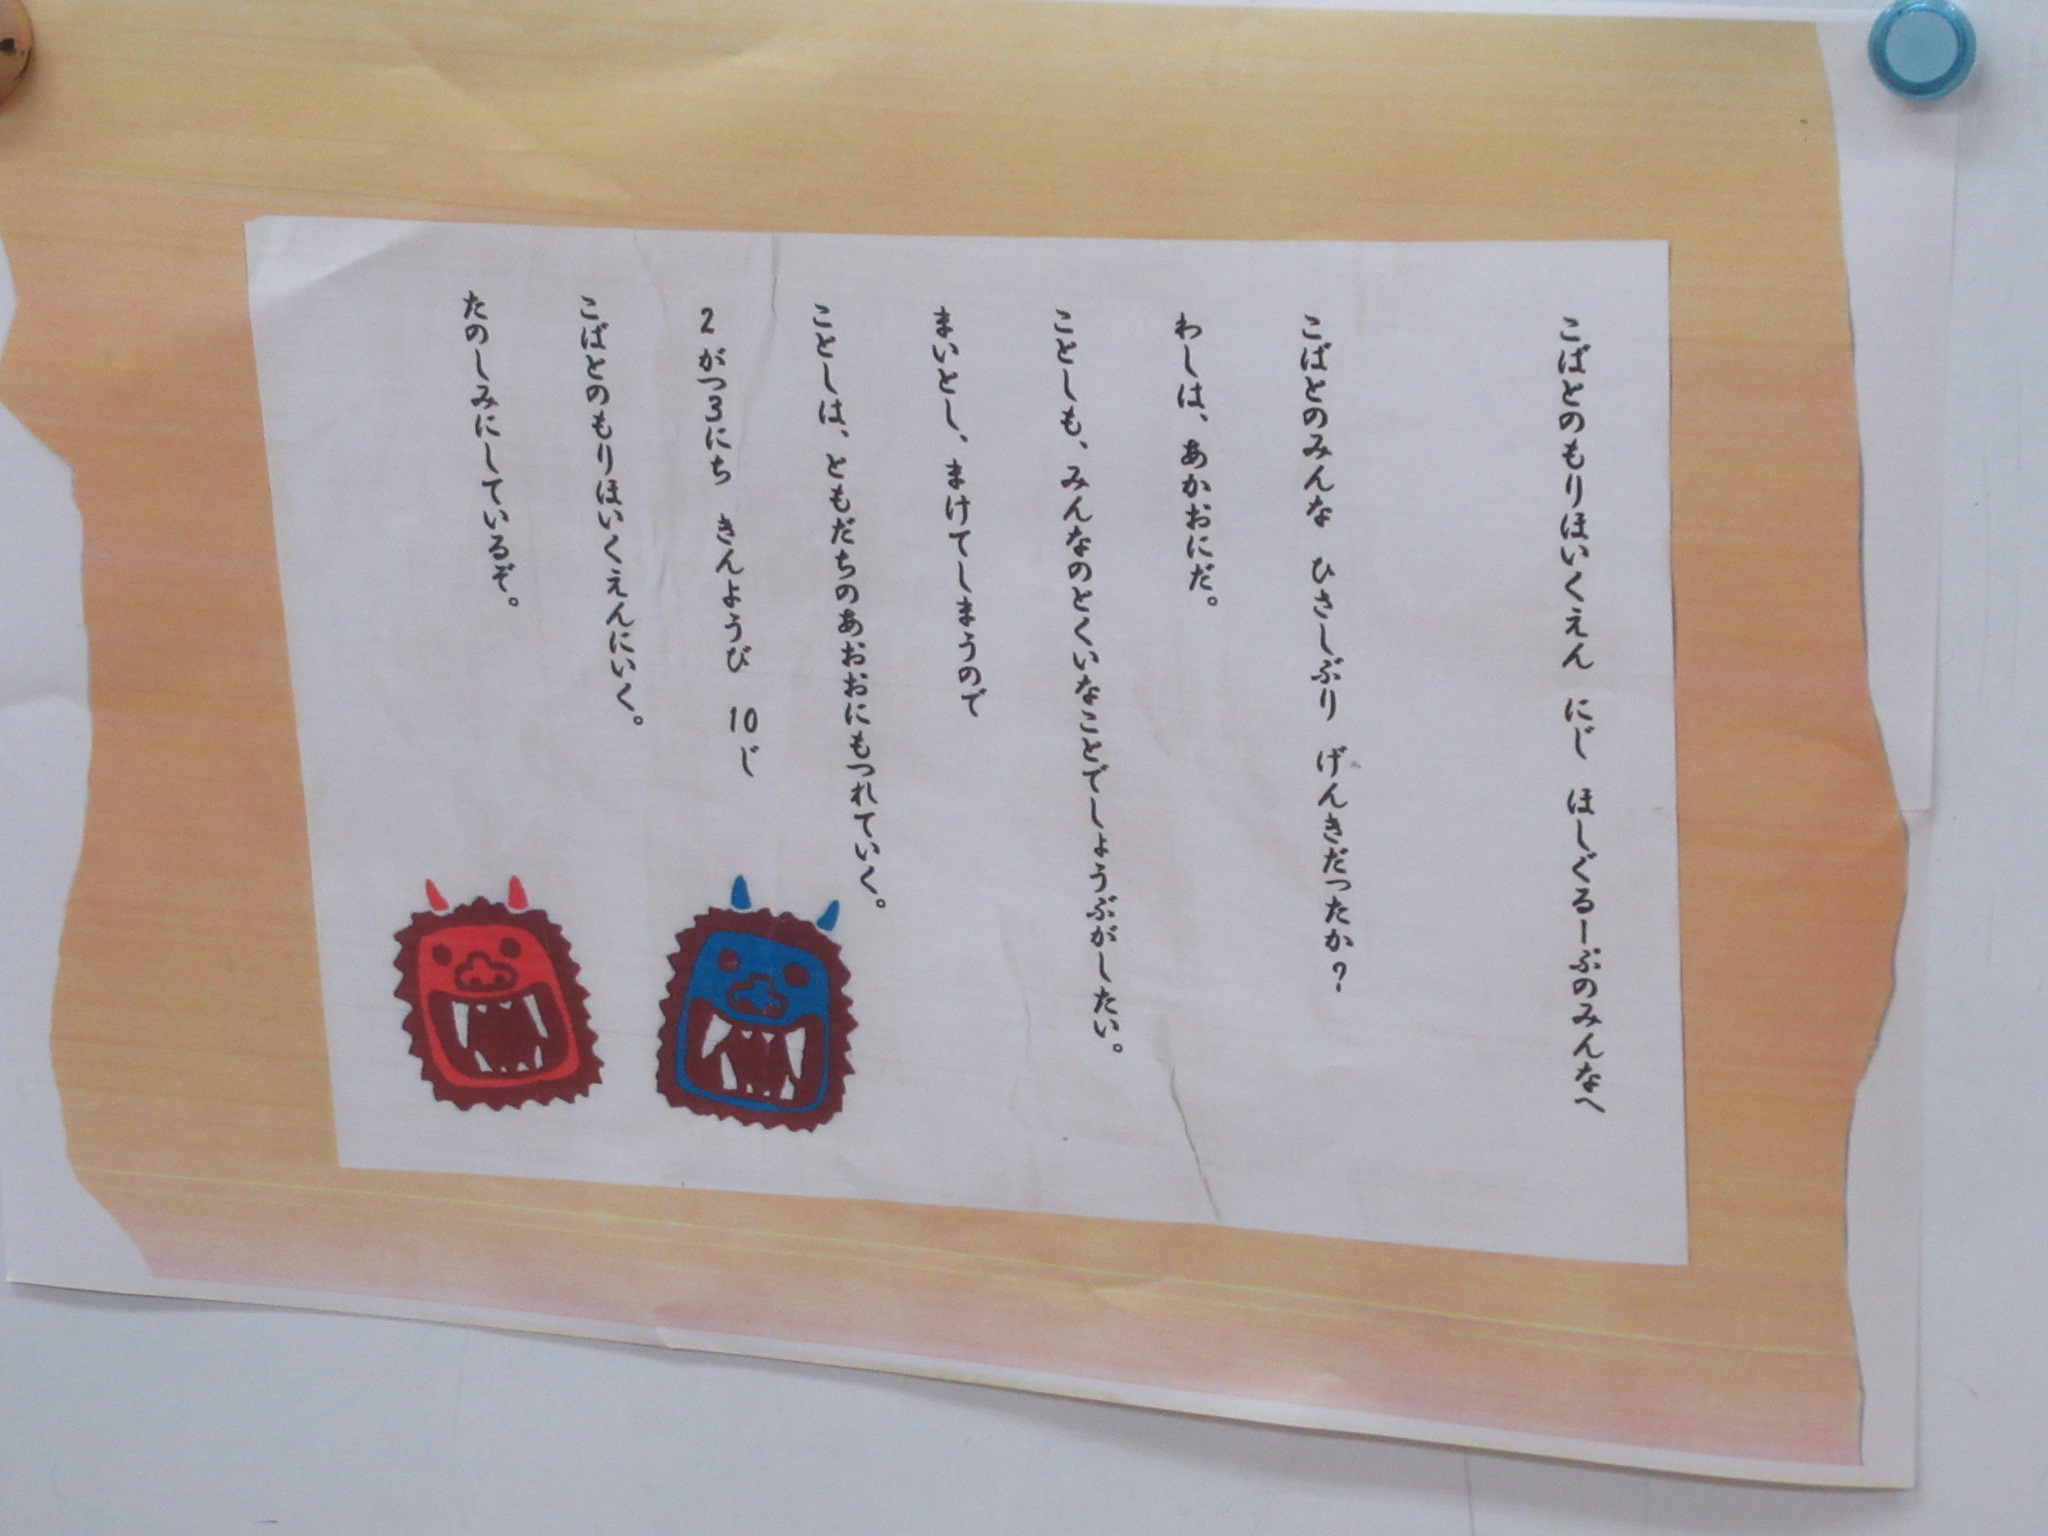 こばとのもりほいくえん　にじ　ほしぐるーぷのみんなへ
こばとのみんな　ひさしぶり　げんきだったか？
わしは、あかおにだ。
ことしも、みんなのとくいなことでしょうぶがしたい。
まいとし、まけてしまうので
ことしは、ともだちのあおおにもつれていく。
2がつ3にち　きんようび　10じ
こばとのもりほいくえんにいく。
たのしみにしているぞ。